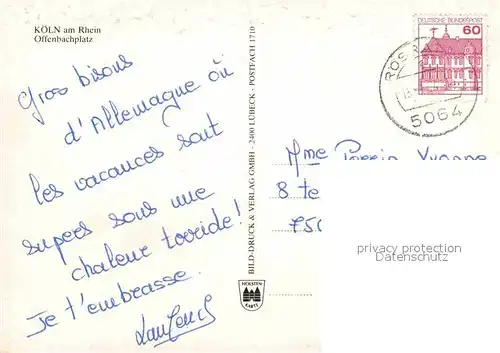 KÖLN am Rhein
Offenbachplatz
Gros bisous
d'Allemagne où
les vacances sont
supers sous une
chaleur torride!
Je t'embrasse.
BILD-DRUCK & VERLAG GMBH - 2400 LÜBECK - POSTFACH 1710
HOLSTEN
KARTE
DEUTSCHE BUNDESPOST
60
RÖS
5064
Mme Perrin Yvonne
8 te
750
privacy protection
Datenschutz